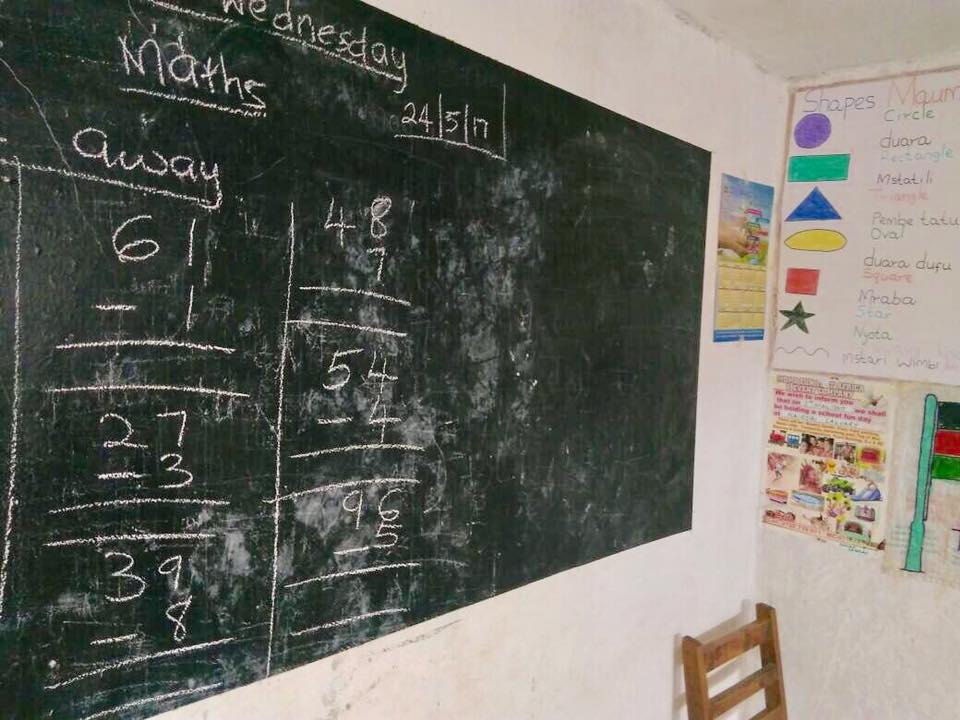 Wednesday
Maths
24/5/17
away
61
- 1
27
- 3
39
- 8
48
7
54
- 4
96
- 5
Shapes Maum
Circle
duara
Rectangle
Mstatili
Triangle
Pembe tatu
Oval
duara dufu
Square
Mraba
Star
Nyota
mstari wimbi
We wish to inform you
that on
we shall
be holding a school fun day
at